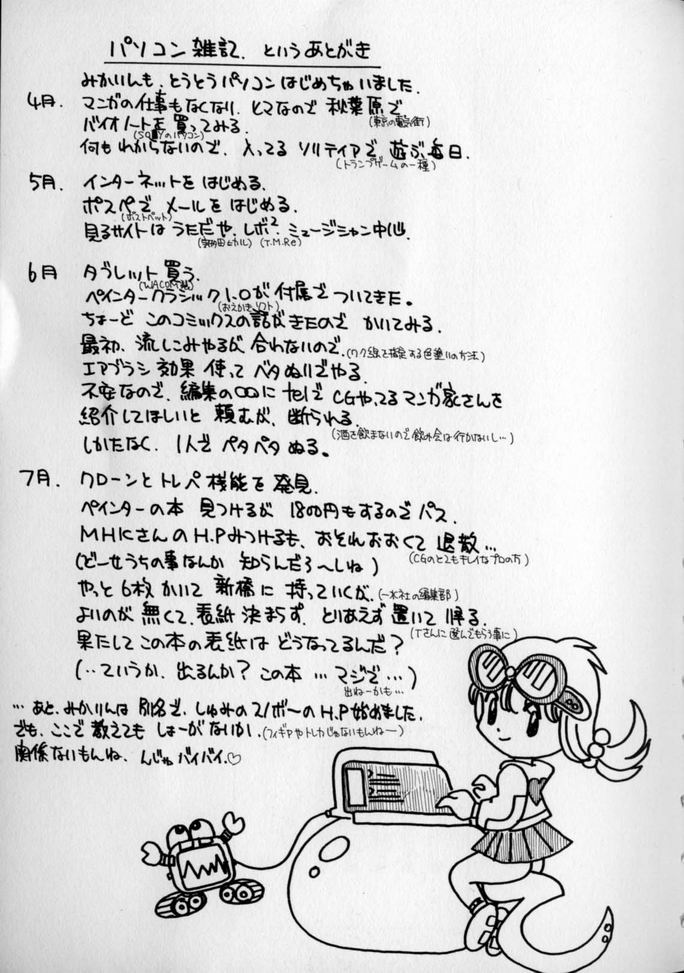 パソコン雑記.というあとがき
みかりんも、とうとうパソコンはじめちゃいました.
4月. マンガの仕事もなくなり、ヒマなので 秋葉原で
(東京の電気街)
バイオノートを買ってみる.
(SONYのパソコン)
何もわからないので、入ってる ソリティアで 遊ぶ毎日.
(トランプゲームの一種)
5月. インターネットを はじめる.
ポスペで メールを はじめる.
(ポストペット)
見るサイトは うただや、レボ2 ミュージシャン中心.
(宇多田ヒカル) (T.M.Re)
6月 タブレット 買う.
(WACOM)
ペインタークラシック1.0が 付属で ついてきた。
(おえかきソフト)
ちょーど このコミックスの話がきたので かいてみる.
最初、流しこみやるが 合わないので.(ワク線で指定する色塗りの方法)
エアブラシ 効果 使って ベタぬりでやる.
不安なので、編集の○○に telで CGやってるマンガ家さんを
紹介してほしいと 頼むが、断られる.
(酒を飲まないので 飲み会は行かないし…)
しかたなく、1人で ペタペタ ぬる。
7月. クローンと トレペ 機能を 発見.
ペインターの本 見つけるが 1800円もするので パス.
MHにさんの H.Pみつけるも、おそれおおくて 退散…
(CGのとてもキレイなプロの方)
(どーせうちの事なんか 知らんだろ〜しね)
やっと 6枚 かいて 新橋に 持っていくが.(一水社の編集部)
よいのが 無くて、表紙 決まらず、とりあえず 置いて 帰る.
(Tさんに 選んでもらう事に)
果たして この本の表紙は どうなってるんだ?
(‥ていうか、出るんか? この本 … マジで …)
出ねーかも…
… あと、みかりんは 別名で、しゅみのスノボーの H.P 始めました.
でも、ここで 教えても しょーがないか.(フィギアやトレカじゃないもんねー)
関係ないもんね、んじゃ バイバイ.♡